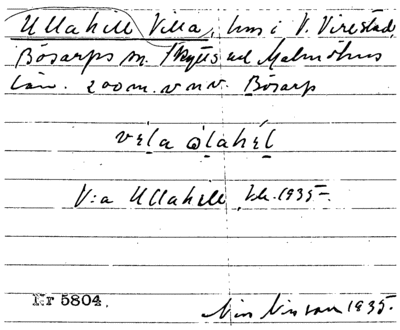 Ullahill Villa, hus i V. Virestad,
Bösarps sn. Skytts hd Malmöhus
län. 200 m. v n v. Bösarp
vɛla ɷlahɛl
V:a Ullahill, tk. 1935.
Nr 5804.
Nils Nilsson 1935.